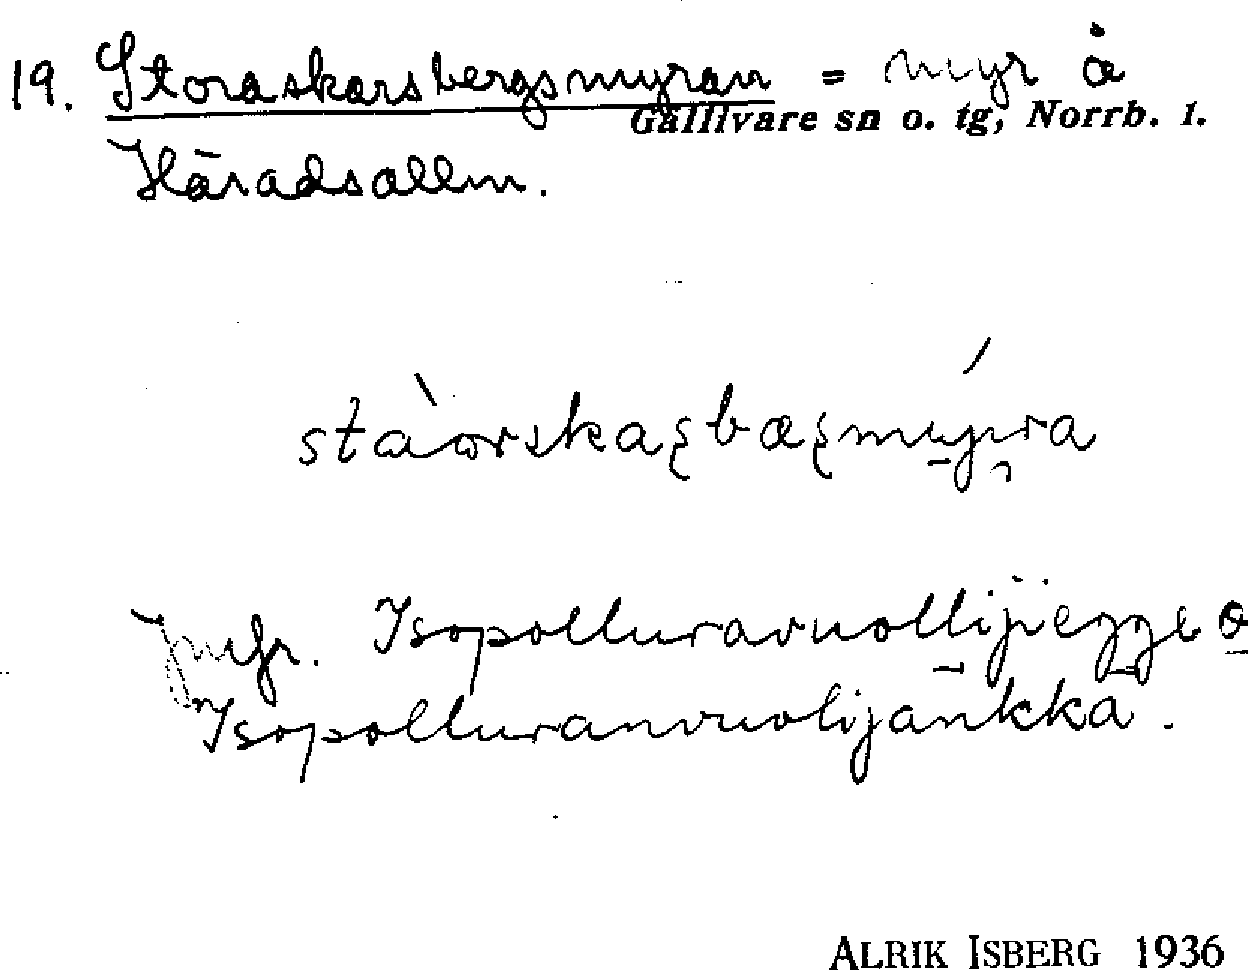 19. Storaskarsbergsmyran = myr å
Gällivare sn o. tg, Norrb. l.
Häradsallm.
Jmfr. Isopolluravuollijiegge o
Isopolluranvuolijänkkä.
ALRIK ISBERG 1936